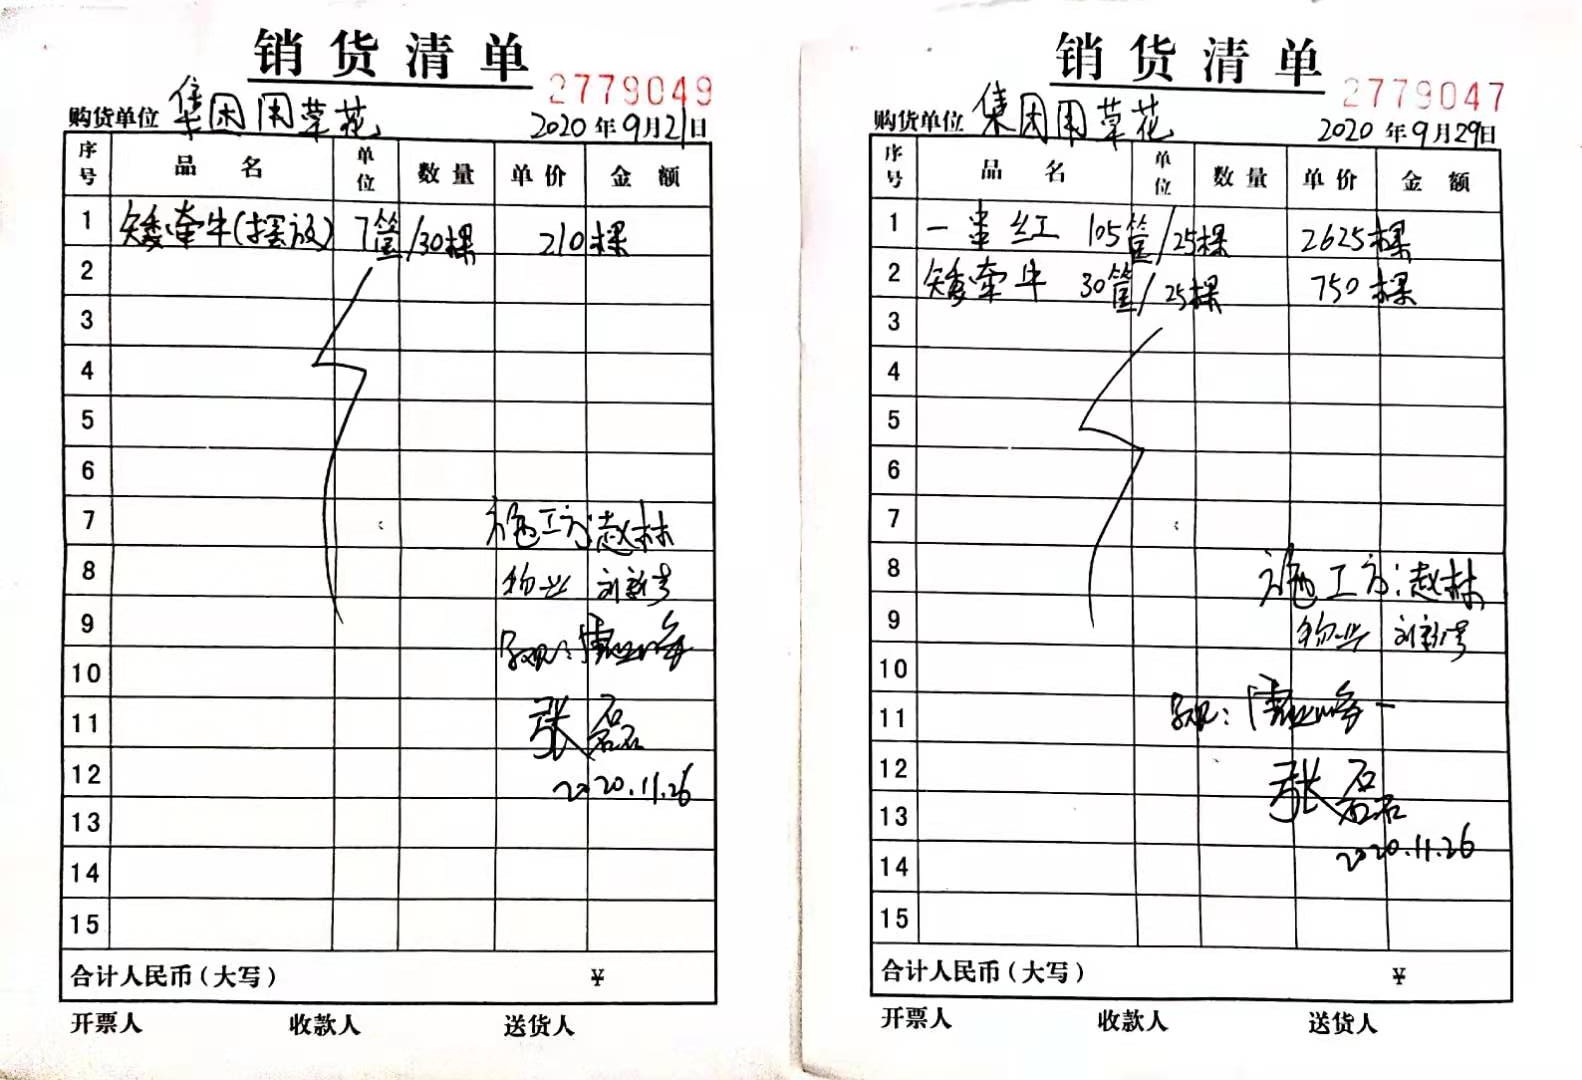 销货清单
2779049
购货单位 集团用草花
2020年9月21日
序号 品名 单位 数量 单价 金额
1 矮牵牛(摆放) 7筐/30棵 210棵
2
3
4
5
6
7 施工方:赵林
8 物业 刘新秀
9
10
11 张磊
12 2020.11.26
13
14
15
合计人民币(大写) ¥
开票人 收款人 送货人
销货清单
2779047
购货单位 集团用草花
2020年9月29日
序号 品名 单位 数量 单价 金额
1 一串红 105筐/25棵 2625棵
2 矮牵牛 30筐/25棵 750棵
3
4
5
6
7
8 施工方:赵林
9 物业 刘新秀
10
11
12 张磊
13
14 2020.11.26
15
合计人民币(大写) ¥
开票人 收款人 送货人